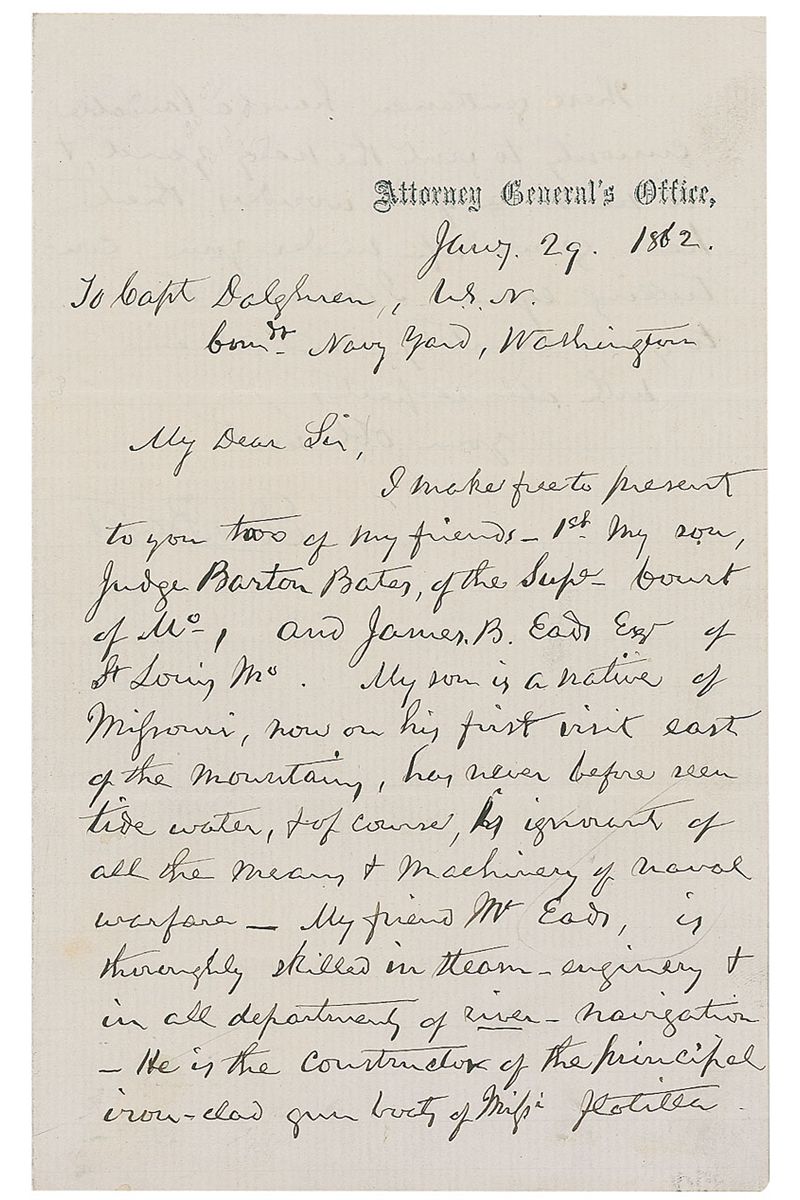 Attorney General's Office,
Jany. 29. 1862.
To Capt Dalghren, U.S.N.
Comdt. Navy Yard, Washington
My Dear Sir,
I make free to present
to you two of my friends – 1st. My son,
Judge Barton Bates, of the Supe– Court
of Mo–, and James. B. Eads Esqr of
St Louis Mo. My son is a native of
Missouri, now on his first visit east
of the mountains, has never before seen
tide water, & of course, is ignorant of
all the means & machinery of naval
warfare — My friend Mr Eads, is
thoroughly skilled in steam-enginery &
in all departments of river-navigation
– He is the constructor of the principal
iron-clad gun boats of Missi flotilla.